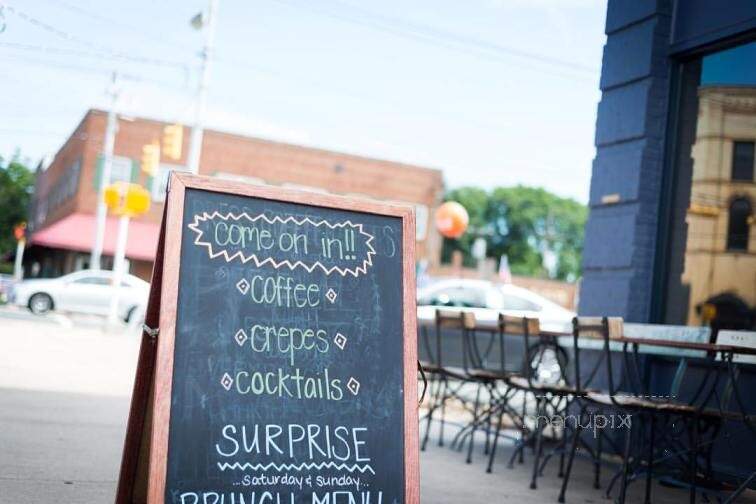 come on in!!
coffee
crepes
cocktails
SURPRISE
...Saturday & Sunday...
BRUNCH MENU
menupix